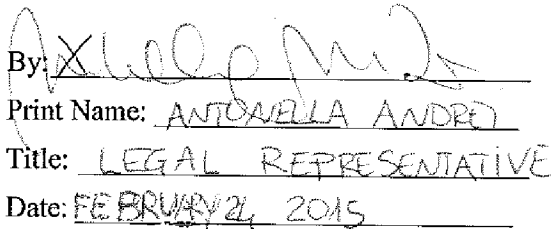 By: X
Print Name: ANTONELLA ANDREI
Title: LEGAL REPRESENTATIVE
Date: FEBRUARY 24, 2015